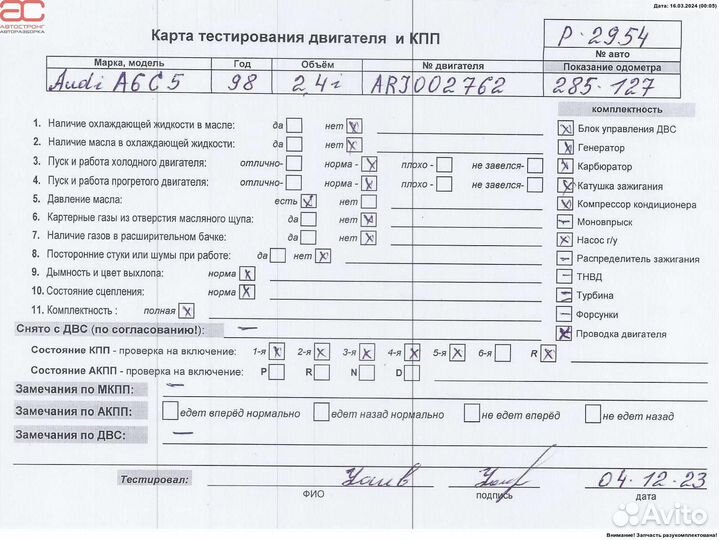 Дата: 16.03.2024 (00:05)
АС
АВТОСТРОНГ
АВТОРАЗБОРКА
Карта тестирования двигателя и КПП
Р-2954
№ авто
Марка, модель Год Объём № двигателя Показание одометра
Audi A6C5 98 2,4i ARJ002762 285-127
комплектность
1. Наличие охлаждающей жидкости в масле: да нет
2. Наличие масла в охлаждающей жидкости: да нет
3. Пуск и работа холодного двигателя: отлично- норма - плохо - не завелся-
4. Пуск и работа прогретого двигателя: отлично- норма - плохо - не завелся-
5. Давление масла: есть нет
6. Картерные газы из отверстия масляного щупа: да нет
7. Наличие газов в расширительном бачке: да нет
8. Посторонние стуки или шумы при работе: да нет
9. Дымность и цвет выхлопа: норма
10. Состояние сцепления: норма
11. Комплектность : полная
Блок управления ДВС
Генератор
Карбюратор
Катушка зажигания
Компрессор кондиционера
Моновпрыск
Насос г/у
Распределитель зажигания
ТНВД
Турбина
Форсунки
Проводка двигателя
Снято с ДВС (по согласованию!): –
Состояние КПП - проверка на включение: 1-я 2-я 3-я 4-я 5-я 6-я R
Состояние АКПП - проверка на включение: P R N D
Замечания по МКПП: –
Замечания по АКПП: едет вперёд нормально едет назад нормально не едет вперёд не едет назад
Замечания по ДВС: –
Тестировал: 04.12.23
ФИО подпись дата
Avito
Внимание! Запчасть разукомплектована!